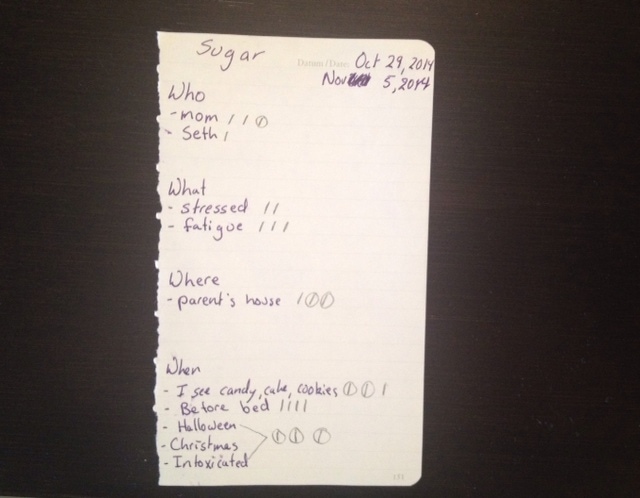 Sugar
Datum / Date: Oct 29, 2014
Nov 5, 2014
Who
- mom / / ⦶
- Seth /
What
- stressed / /
- fatigue / / /
Where
- parent's house / ⦶ ⦶
When
- I see candy, cake, cookies ⦶ ⦶ /
- Before bed / / / /
- Halloween
- Christmas ⦶ ⦶ ⦶
- Intoxicated